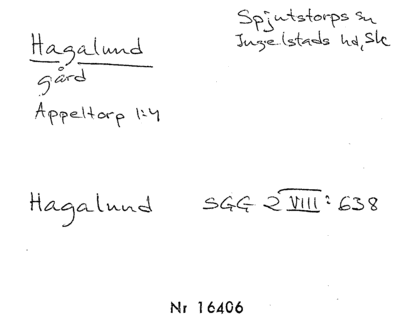 Hagalund
gård
Appeltorp 1:4
Spjutstorps sn
Ingelstads hd, Sk
Hagalund SGG 2 VIII: 638
Nr 16406